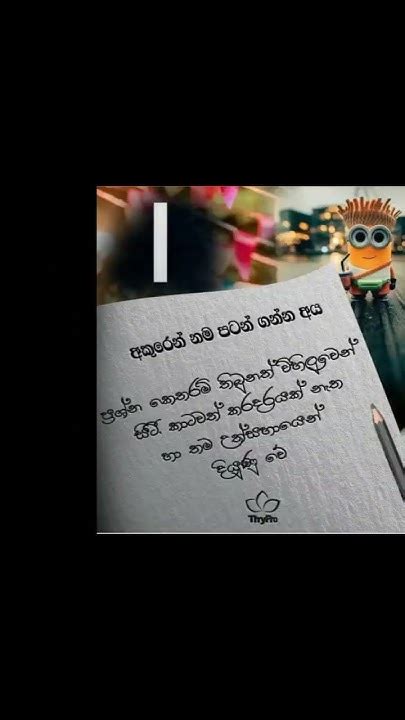 I
අකුරෙන් නම පටන් ගන්න අය
ප්‍රශ්න කෙතරම් තිබුනත් විහිලුවෙන්
සිටී. කාටවත් කරදරයක් නැත
හා තම උත්සහායෙන්
දියුණු වේ
ThyPro